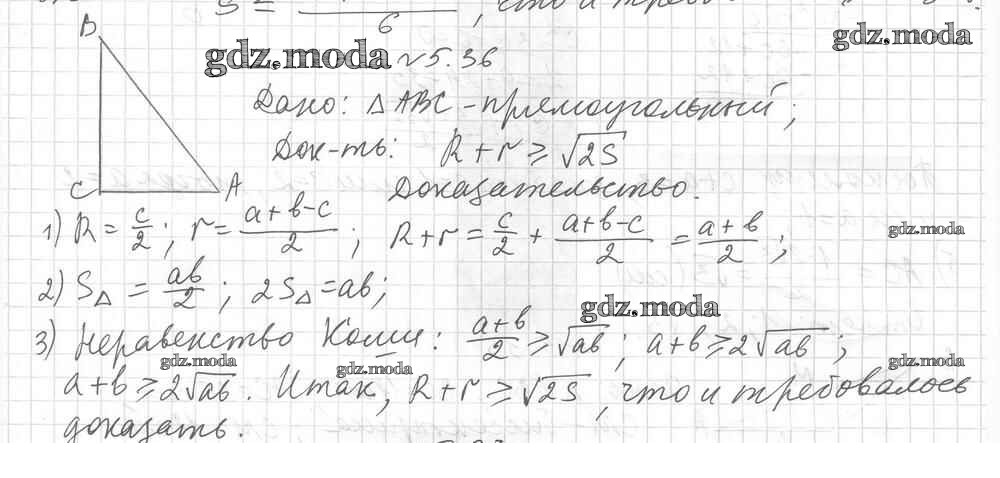 S = 6, что и треб
gdz.moda
gdz.moda
№5.36
B
C
A
Дано: △ABC - прямоугольный;
Док-ть: R + r ≥ √2S
Доказательство.
1) R = c/2; r = (a+b-c)/2; R + r = c/2 + (a+b-c)/2 = (a+b)/2;
gdz.moda
2) S△ = ab/2; 2S△ = ab;
gdz.moda
3) Неравенство Коши: (a+b)/2 ≥ √ab; a+b ≥ 2√ab;
gdz.moda
gdz.moda
gdz.moda
a+b ≥ 2√ab. Итак, R + r ≥ √2S, что и требовалось
доказать.